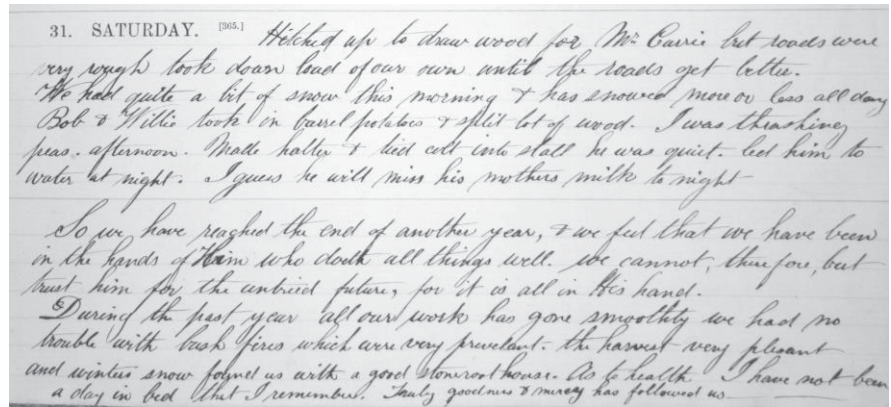 31. SATURDAY. [365.] Hitched up to draw wood for Mr. Carrie but roads were
very rough took down load of our own until the roads get better.
We had quite a bit of snow this morning & has snowed more or less all day
Bob & Willie took in barrel potatoes & split lot of wood. I was thrashing
peas. afternoon. Made halter & tied colt into stall he was quiet. led him to
water at night. I guess he will miss his mothers milk to night
So we have reached the end of another year, & we feel that we have been
in the hands of Him who doeth all things well. we cannot, therefore, but
trust him for the untried future, for it is all in His hand.
During the past year all our work has gone smoothly we had no
trouble with bush fires which were very prevelant. the harvest very plesant
and winters snow found us with a good stoneroothouse. As to health I have not been
a day in bed that I remember. Truly goodness & mercy has followed us